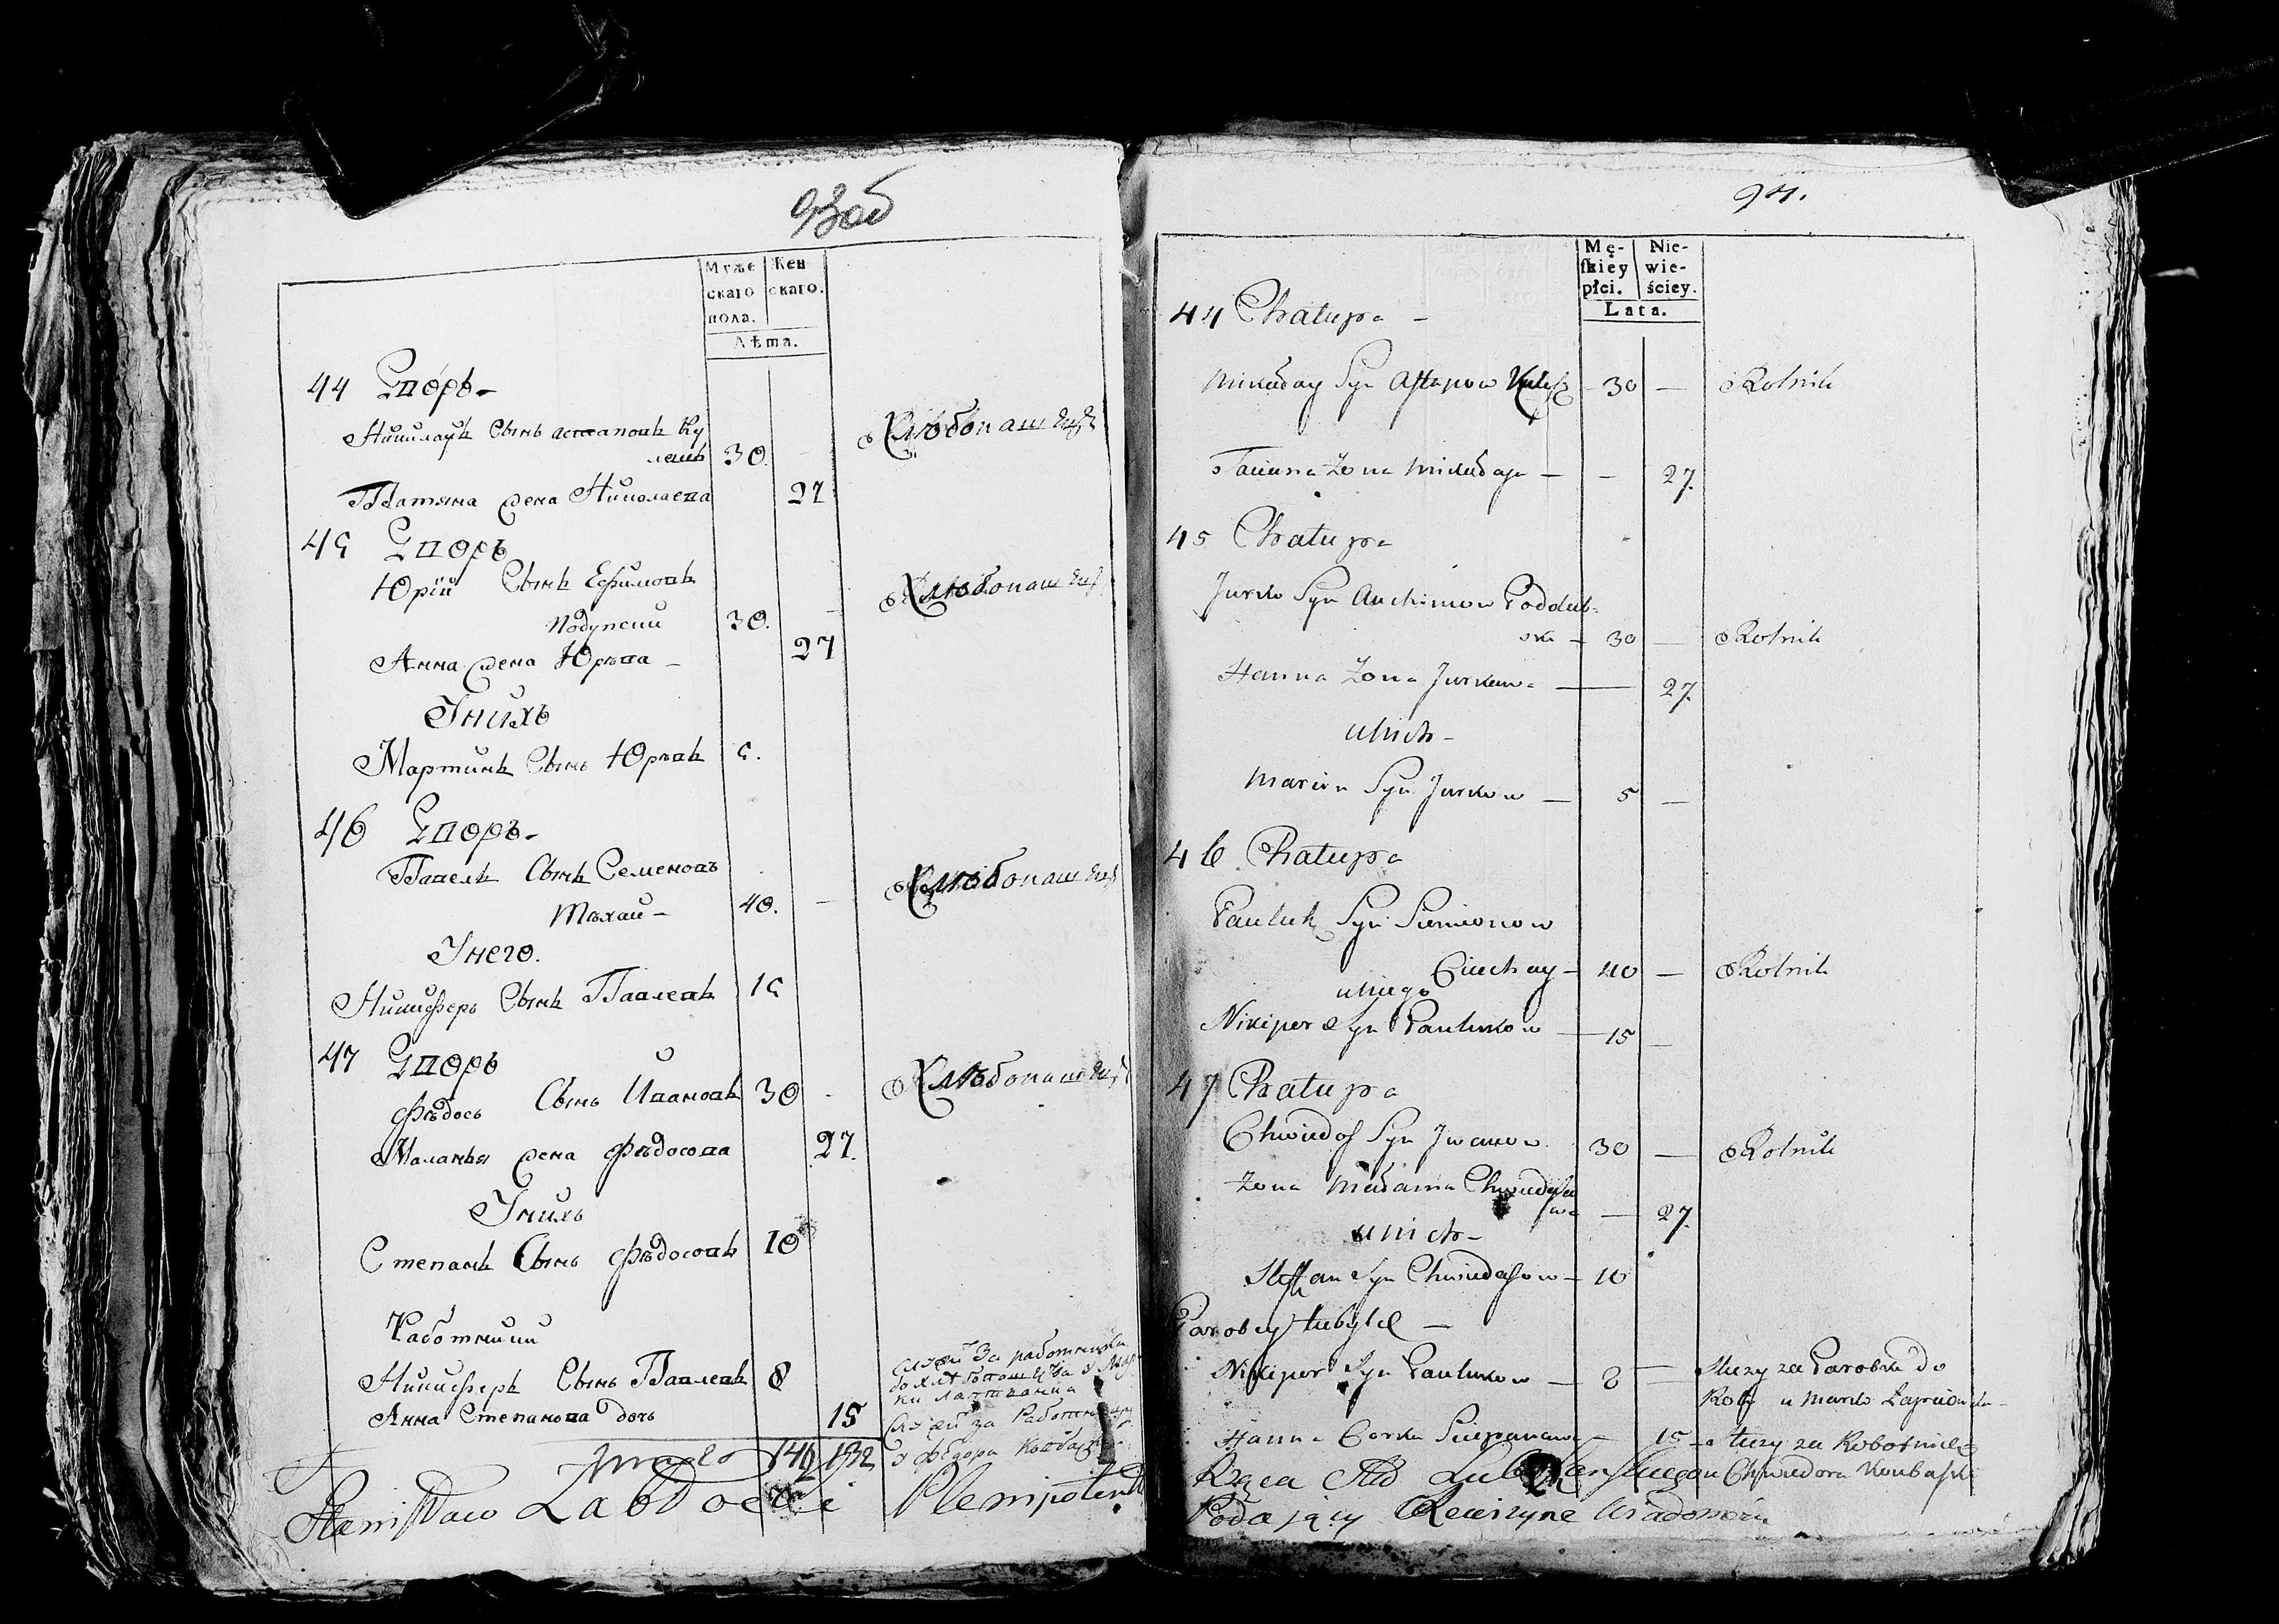 93об
Муже
скаго
пола.
Жен
скаго.
Лѣта.
44 Двор
Николай Сынъ астаповъ Ку
лешъ 30. — Хлѣбопашецъ
Татяна жена Николаева 27
45 Дворъ
Юрій Сынъ Ефимовъ
30. — Хлѣбопашецъ
Анна жена Юрьва — 27
У нихъ
Мартинъ Сынъ Юрьвъ 5.
46 Дворъ —
Павелъ Сынъ Семеновъ
Тѣхай — 40. — Хлѣбопашецъ
У него.
Никиферъ Сынъ Павлевъ 15
47 Дворъ
Фѣдось Сынъ Ивановъ 30 Хлѣбопашецъ
Маланья жена Фѣдосова 27.
У нихъ
Степанъ Сынъ Фѣдосовъ 10
Работники
Никиферъ Сынъ Павлевъ 8 за работника
до хлѣбопашества у Мар
ки
Анна Степанова дочь 15 за Работницу
у Федора
146 132
Stanisław Plenipotent
94.
Mę-
ſkiey
płci.
Nie-
wie-
ściey.
Lata.
44 Chałupa —
Mikołay Syn Astapow Kulesz — 30 — Rolnik
Taciana Zona Mikołaja — — 27.
45 Chałupa
Jurko Syn Auchimow Poddub-
ski — 30 — Rolnik
Hanna Zona Jurkowa — 27.
u nich —
Marcin Syn Jurkow — 5 —
46 Chałupa
Pauluk Syn Siemionow
Ciechay — 40 — Rolnik
u niego
Nikiper Syn Paulukow — 15 —
47 Chałupa
Chwiedos Syn Jwanow 30 — Rolnik
Zona Małania Chwiedoso
wa — 27.
u nich —
Steffan Syn Chwiedosow — 10
Parobcy tubylcy —
Nikiper Syn Paulukow — 8 — Służy za Parobka do
Roli u Marka
Hanna Corka Sciepanowa — 15 — Służy za Robotnicę
u Chwiedora
Podający Rewizyne Wiadomości